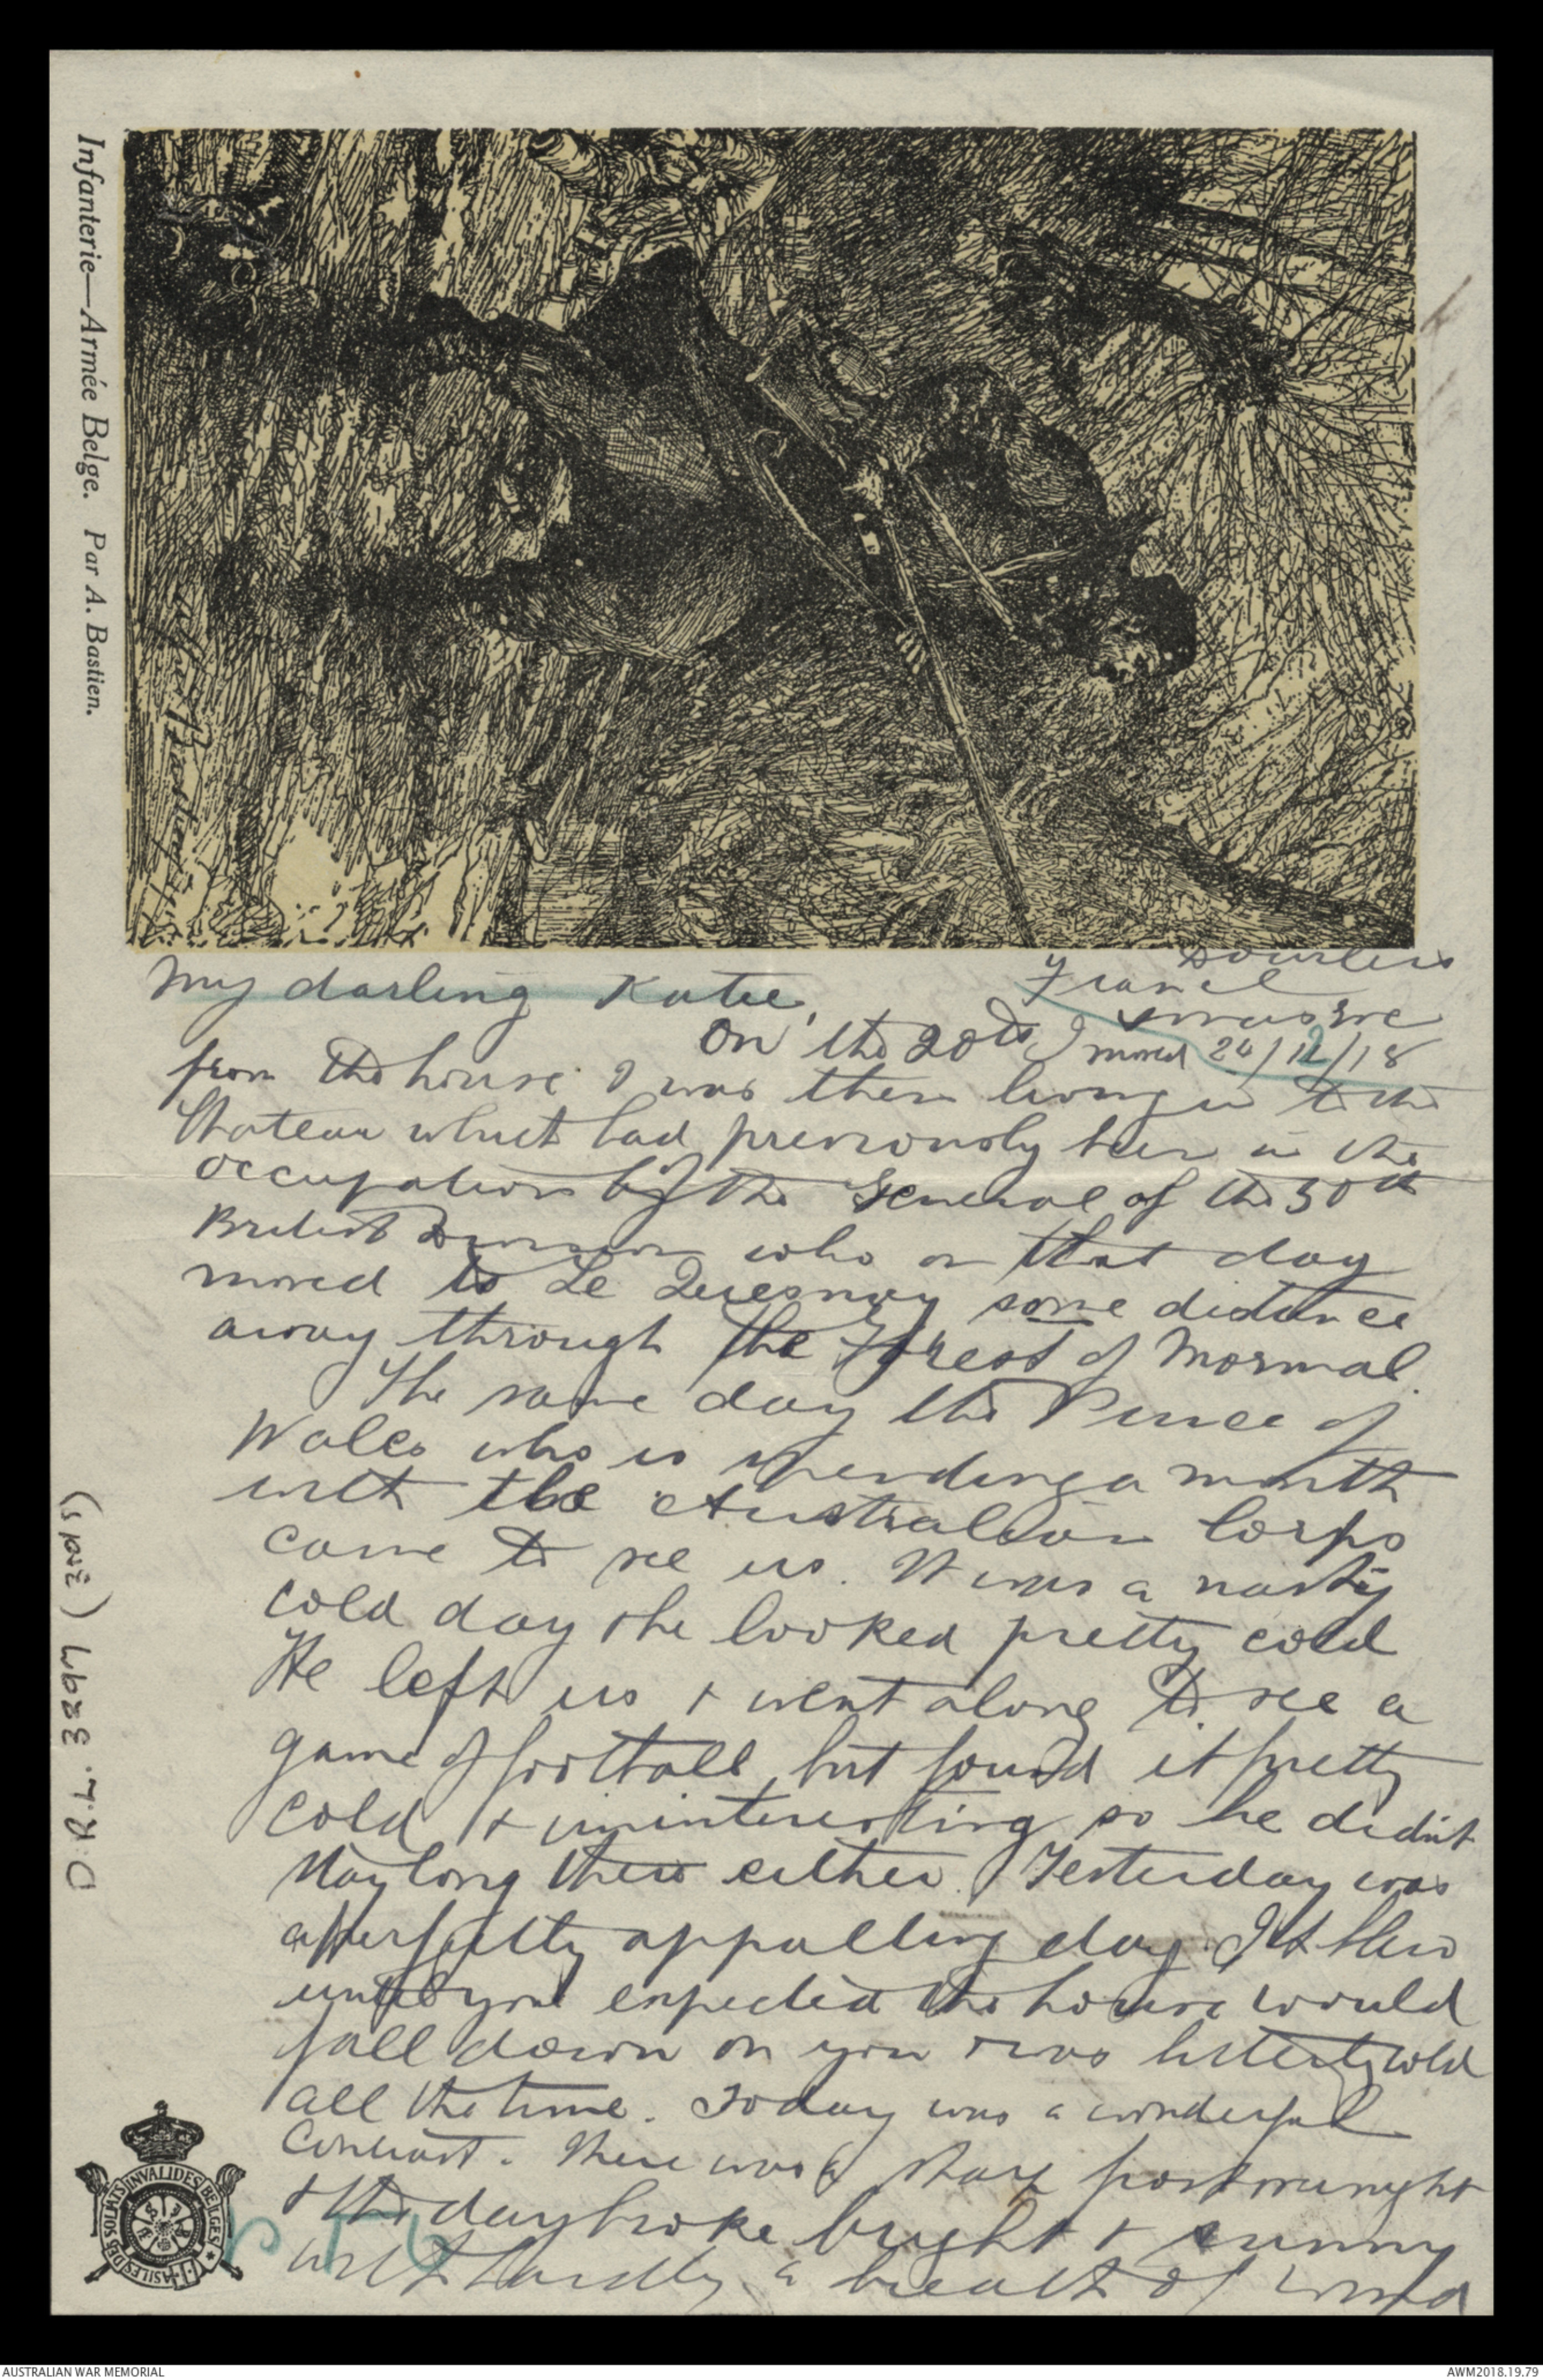 Infanterie—Armée Belge. Par A. Bastien.
Dourlers
France
My darling Katie,
On the 20th I moved 24/12/18
from the house I was then living in to the
Chateau which had previously been in the
occupation of the General of the 50th
British Division who on that day
moved to Le Quesnoy some distance
away through the Forest of Mormal.
The same day the Prince of
Wales who is spending a month
with the Australian Corps
came to see us. It was a nasty
cold day & he looked pretty cold
He left us & went along to see a
game of football, but found it pretty
cold & uninteresting so he didn't
stay long there either. Yesterday was
a perfectly appalling day. It blew
until you expected the house would
fall down on you & was bitterly cold
all the time. Today was a wonderful
Contrast. There was a sharp frost overnight
& the day broke bright & sunny
with hardly a breath of wind
D.R.L. 3297 (3rd s)
ASILES DES SOLDATS INVALIDES BELGES
AUSTRALIAN WAR MEMORIAL
AWM2018.19.79